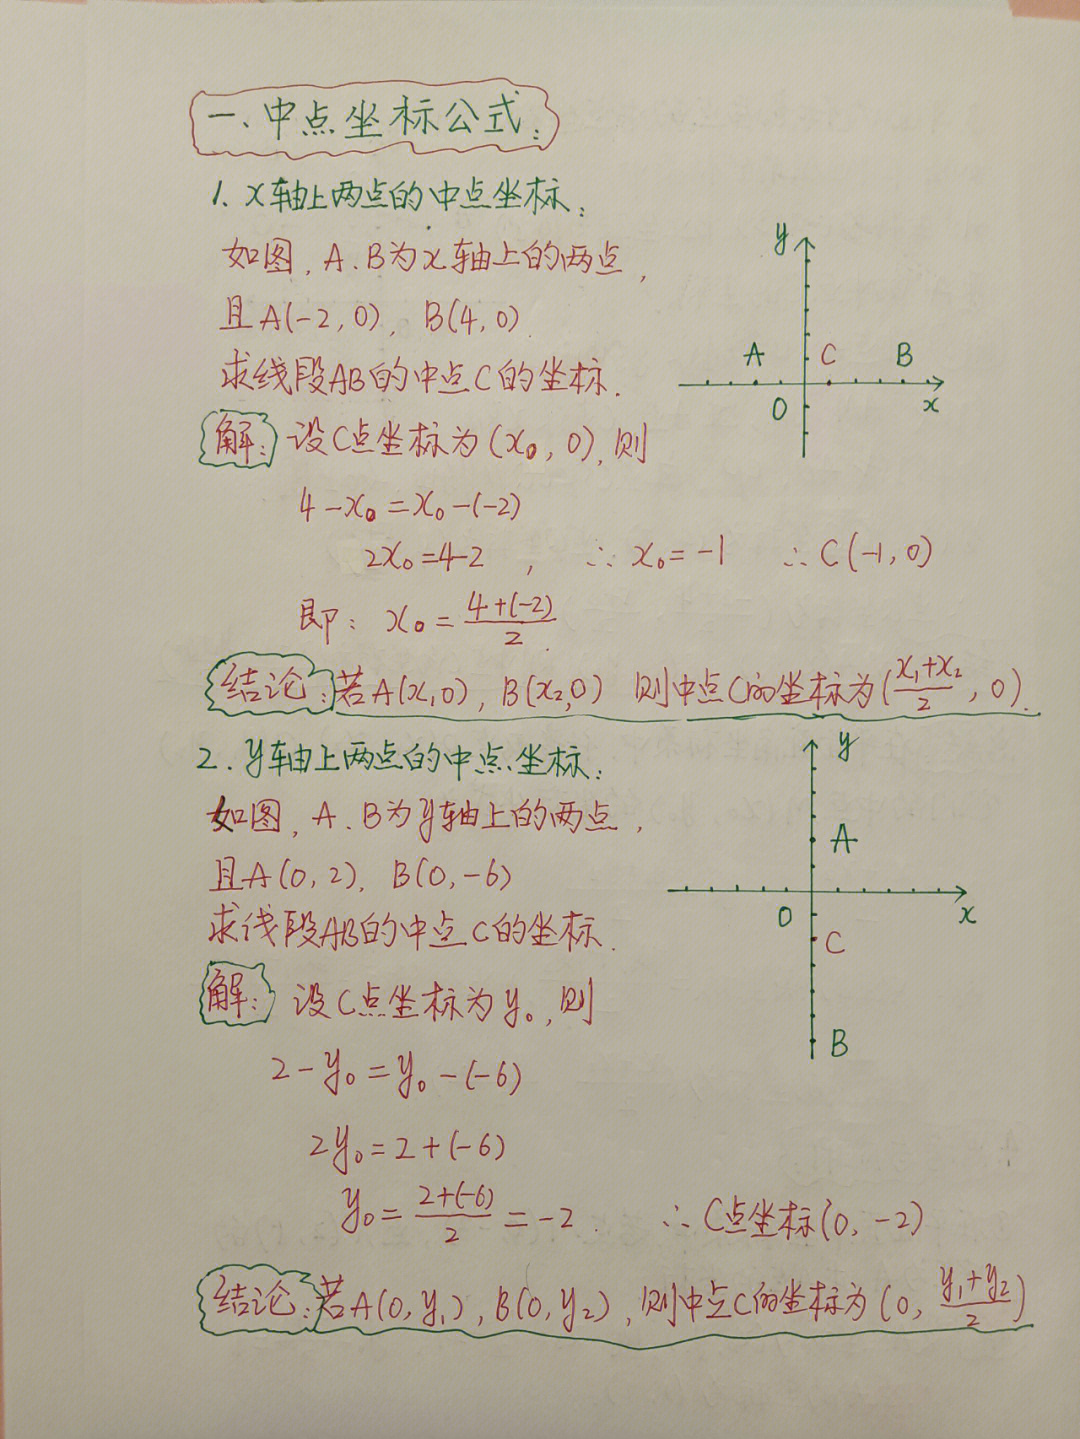 一、中点坐标公式：
1、x轴上两点的中点坐标：
如图，A、B为x轴上的两点，
且A(-2,0)，B(4,0)
求线段AB的中点C的坐标.
y
A C B
O x
解：设C点坐标为(x₀,0)，则
4-x₀=x₀-(-2)
2x₀=4-2，∴x₀=-1 ∴C(-1,0)
即：x₀=\frac{4+(-2)}{2}
结论：若A(x₁,0)，B(x₂,0) 则中点C的坐标为(\frac{x₁+x₂}{2},0).
2.y轴上两点的中点坐标：
如图，A、B为y轴上的两点，
且A(0,2)，B(0,-6)
求线段AB的中点C的坐标.
y
A
O x
C
B
解：设C点坐标为y₀，则
2-y₀=y₀-(-6)
2y₀=2+(-6)
y₀=\frac{2+(-6)}{2}=-2. ∴C点坐标(0,-2)
结论：若A(0,y₁)，B(0,y₂)，则中点C的坐标为(0,\frac{y₁+y₂}{2})